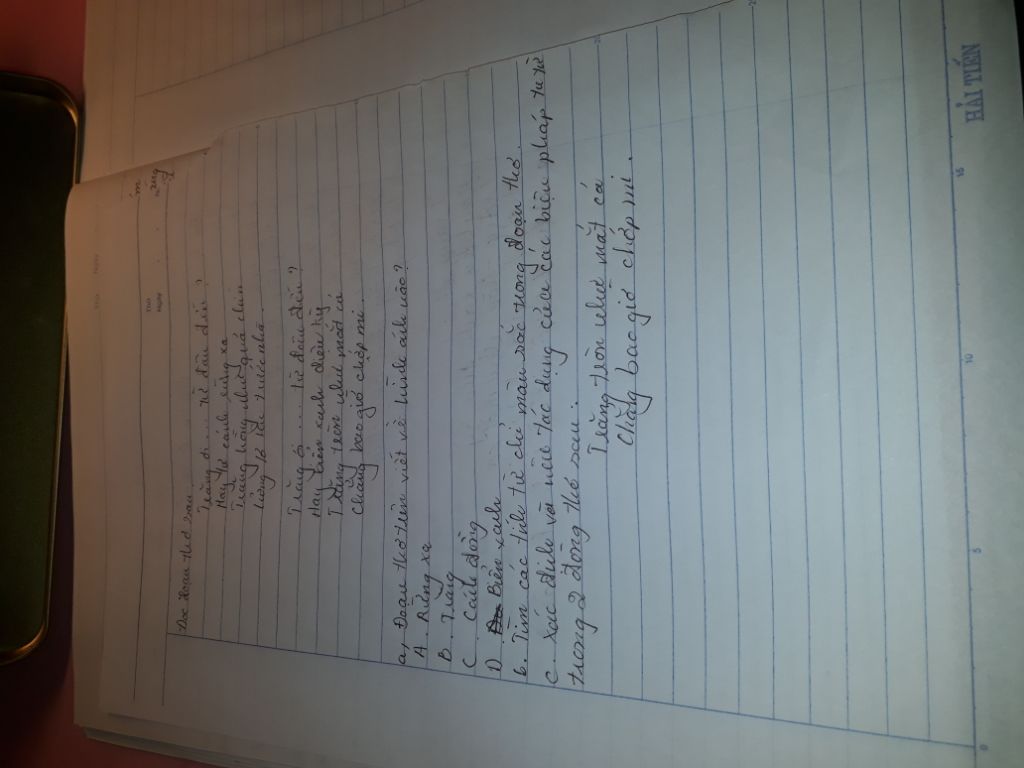 Đọc đoạn thơ sau
Trăng ơi.... từ đâu đến?
Hay từ cánh rừng xa
Trăng hồng như quả chín
Lửng lơ lên trước nhà.
Trăng ơi.... từ đâu đến?
Hay biển xanh diệu kỳ
Trăng tròn như mắt cá
Chẳng bao giờ chớp mi.
a, Đoạn thơ trên viết về hình ảnh nào?
A. Rừng xa
B. Trăng
C Cánh đồng
D Biển xanh
b. Tìm các tính từ chỉ màu sắc trong đoạn thơ.
c. Xác định và nêu tác dụng của các biện pháp tu từ
trong 2 dòng thơ sau:
Trăng tròn như mắt cá
Chẳng bao giờ chớp mi.
Thứ
Ngày
0
5
10
15
HẢI TIẾN